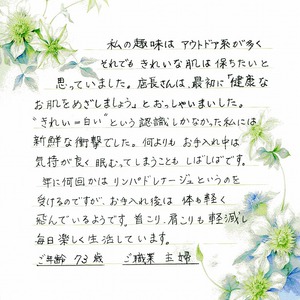 私の趣味は アウトドア系が多く
それでも きれいな肌は保ちたいと
思っていました。店長さんは、最初に「健康な
お肌をめざしましょう」とおっしゃいました。
"きれい=白い"という認識しかなかった私には
新鮮な衝撃でした。何よりも、お手入れ中は
気持が良く 眠むってしまうことも しばしばです。
年に何回かは リンパドレナージュというのを
受けるのですが、お手入れ後は 体も軽く
飛んでいるようです。首こり、肩こりも 軽減し
毎日 楽しく 生活しています。
ご年齢 73 歳 ご職業 主婦